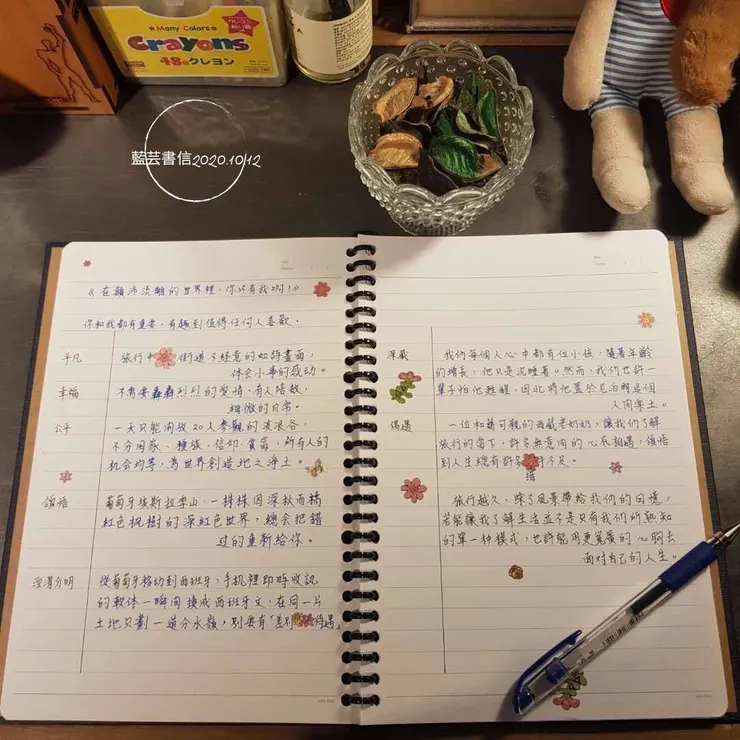 Many Colors
Crayons
48色クレヨン
藍芸書信2020.10.12
《在顛沛流離的世界裡,你還有我啊!》
你和我都有重要、有趣到值得任何人喜歡。
平凡
旅行中 街道不經意的如詩畫面,
体会小事的感动。
幸福
不需要轟轟烈烈的愛情,有人陪妳,
細微的日常。
公平
一天只能開放20人參觀的浪浪谷,
不分國家、種族、信仰、貧富,所有人的
机会均等,為世界創造地之淨土。
領悟
葡萄牙埃斯拉拿山,一抹抹因深秋而橘
紅色楓樹的深紅色世界,總会把錯
过的重新給你。
涇渭分明
從葡萄牙移动到西班牙,手机裡即時收訊
的軟体一瞬間換成西班牙文,在同一片
土地只劃一道分水嶺,別要有「差別 待遇」
深藏
我們每個人心中都有位小孩,隨著年齡
的增長,他只是沉睡著。然而,我們也許一
輩子怕他甦醒,因此將他置於尼泊爾這個
人间樂土。
偶遇
一位和藹可親的西藏老奶奶,讓我們了解
旅行的當下,許多無意间的心灵相遇,領悟
到人生總有許多 措手不足。
旅行越久,除了風景帶給我們的回憶,
若能讓我了解生活並不是只有我们所熟知
的單一种模式,也許能用更寬廣的心胸去
面對自己的人生。